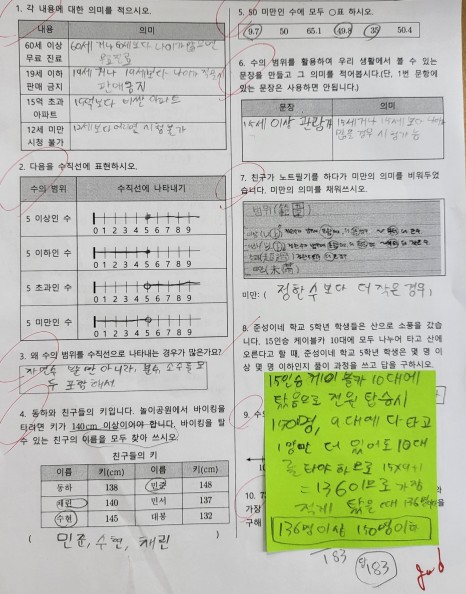 1. 각 내용에 대한 의미를 적으시오.
내용 의미
60세 이상 무료 진료 60세 거나 60세보다 나이가 많으면 무료진료
19세 이하 판매 금지 19세 거나 19세보다 나이가 판매금지
15억 초과 아파트 15억보다 비싼 아파트
12세 미만 시청 불가 12세보다 어리면 시청불가
2. 다음을 수직선에 표현하시오.
수의 범위 수직선에 나타내기
5 이상인 수
0 1 2 3 4 5 6 7 8 9
5 이하인 수
0 1 2 3 4 5 6 7 8 9
5 초과인 수
0 1 2 3 4 5 6 7 8 9
5 미만인 수
0 1 2 3 4 5 6 7 8 9
3. 왜 수의 범위를 수직선으로 나타내는 경우가 많은가요?
자연수 뿐만 아니라, 분수, 소수를 모
두 포함해서
4. 동하와 친구들의 키입니다. 놀이공원에서 바이킹을
타려면 키가 140cm 이상이어야 합니다. 바이킹을 탈
수 있는 친구의 이름을 모두 찾아 쓰시오.
친구들의 키
이름 키(cm) 이름 키(cm)
동하 138 민준 148
채린 140 민서 137
수현 145 대봉 132
( 민준, 수현, 채린 )
5. 50 미만인 수에 모두 ○표 하시오.
9.7 50 65.1 49.8 35 50.4
6. 수의 범위를 활용하여 우리 생활에서 볼 수 있는
문장을 만들고 그 의미를 적어봅시다.(단, 1번 문항에
있는 문장은 사용하면 안됩니다.)
문장 의미
15세 이상 관람가 15세거나 15세보다 나이
많은 경우 시청가능
7. 친구가 노트필기를 하다가 미만의 의미를 비워두었
습니다. 미만의 의미를 채워쓰시오.
범위(範圍)
미만: ( 정한 수보다 더 작은 경우 )
8. 준성이네 학교 5학년 학생들은 산으로 소풍을 갔습
니다. 15인승 케이블카 10대에 모두 나누어 타고 산에
오른다고 할 때, 준성이네 학교 5학년 학생은 몇 명 이
상 몇 명 이하인지 풀이 과정을 쓰고 답을 구하시오.
15인승 케이블카 10대에
탔음으로 전원 탑승시
150명, 9대에 다 타고
1명만 더 있어도 10대
를 타야 하므로 15×9+1
=136이므로 가장
적게 탔을 때 136명
136명이상 150명이하
9. 수
10.
가장
구해
183
답 183